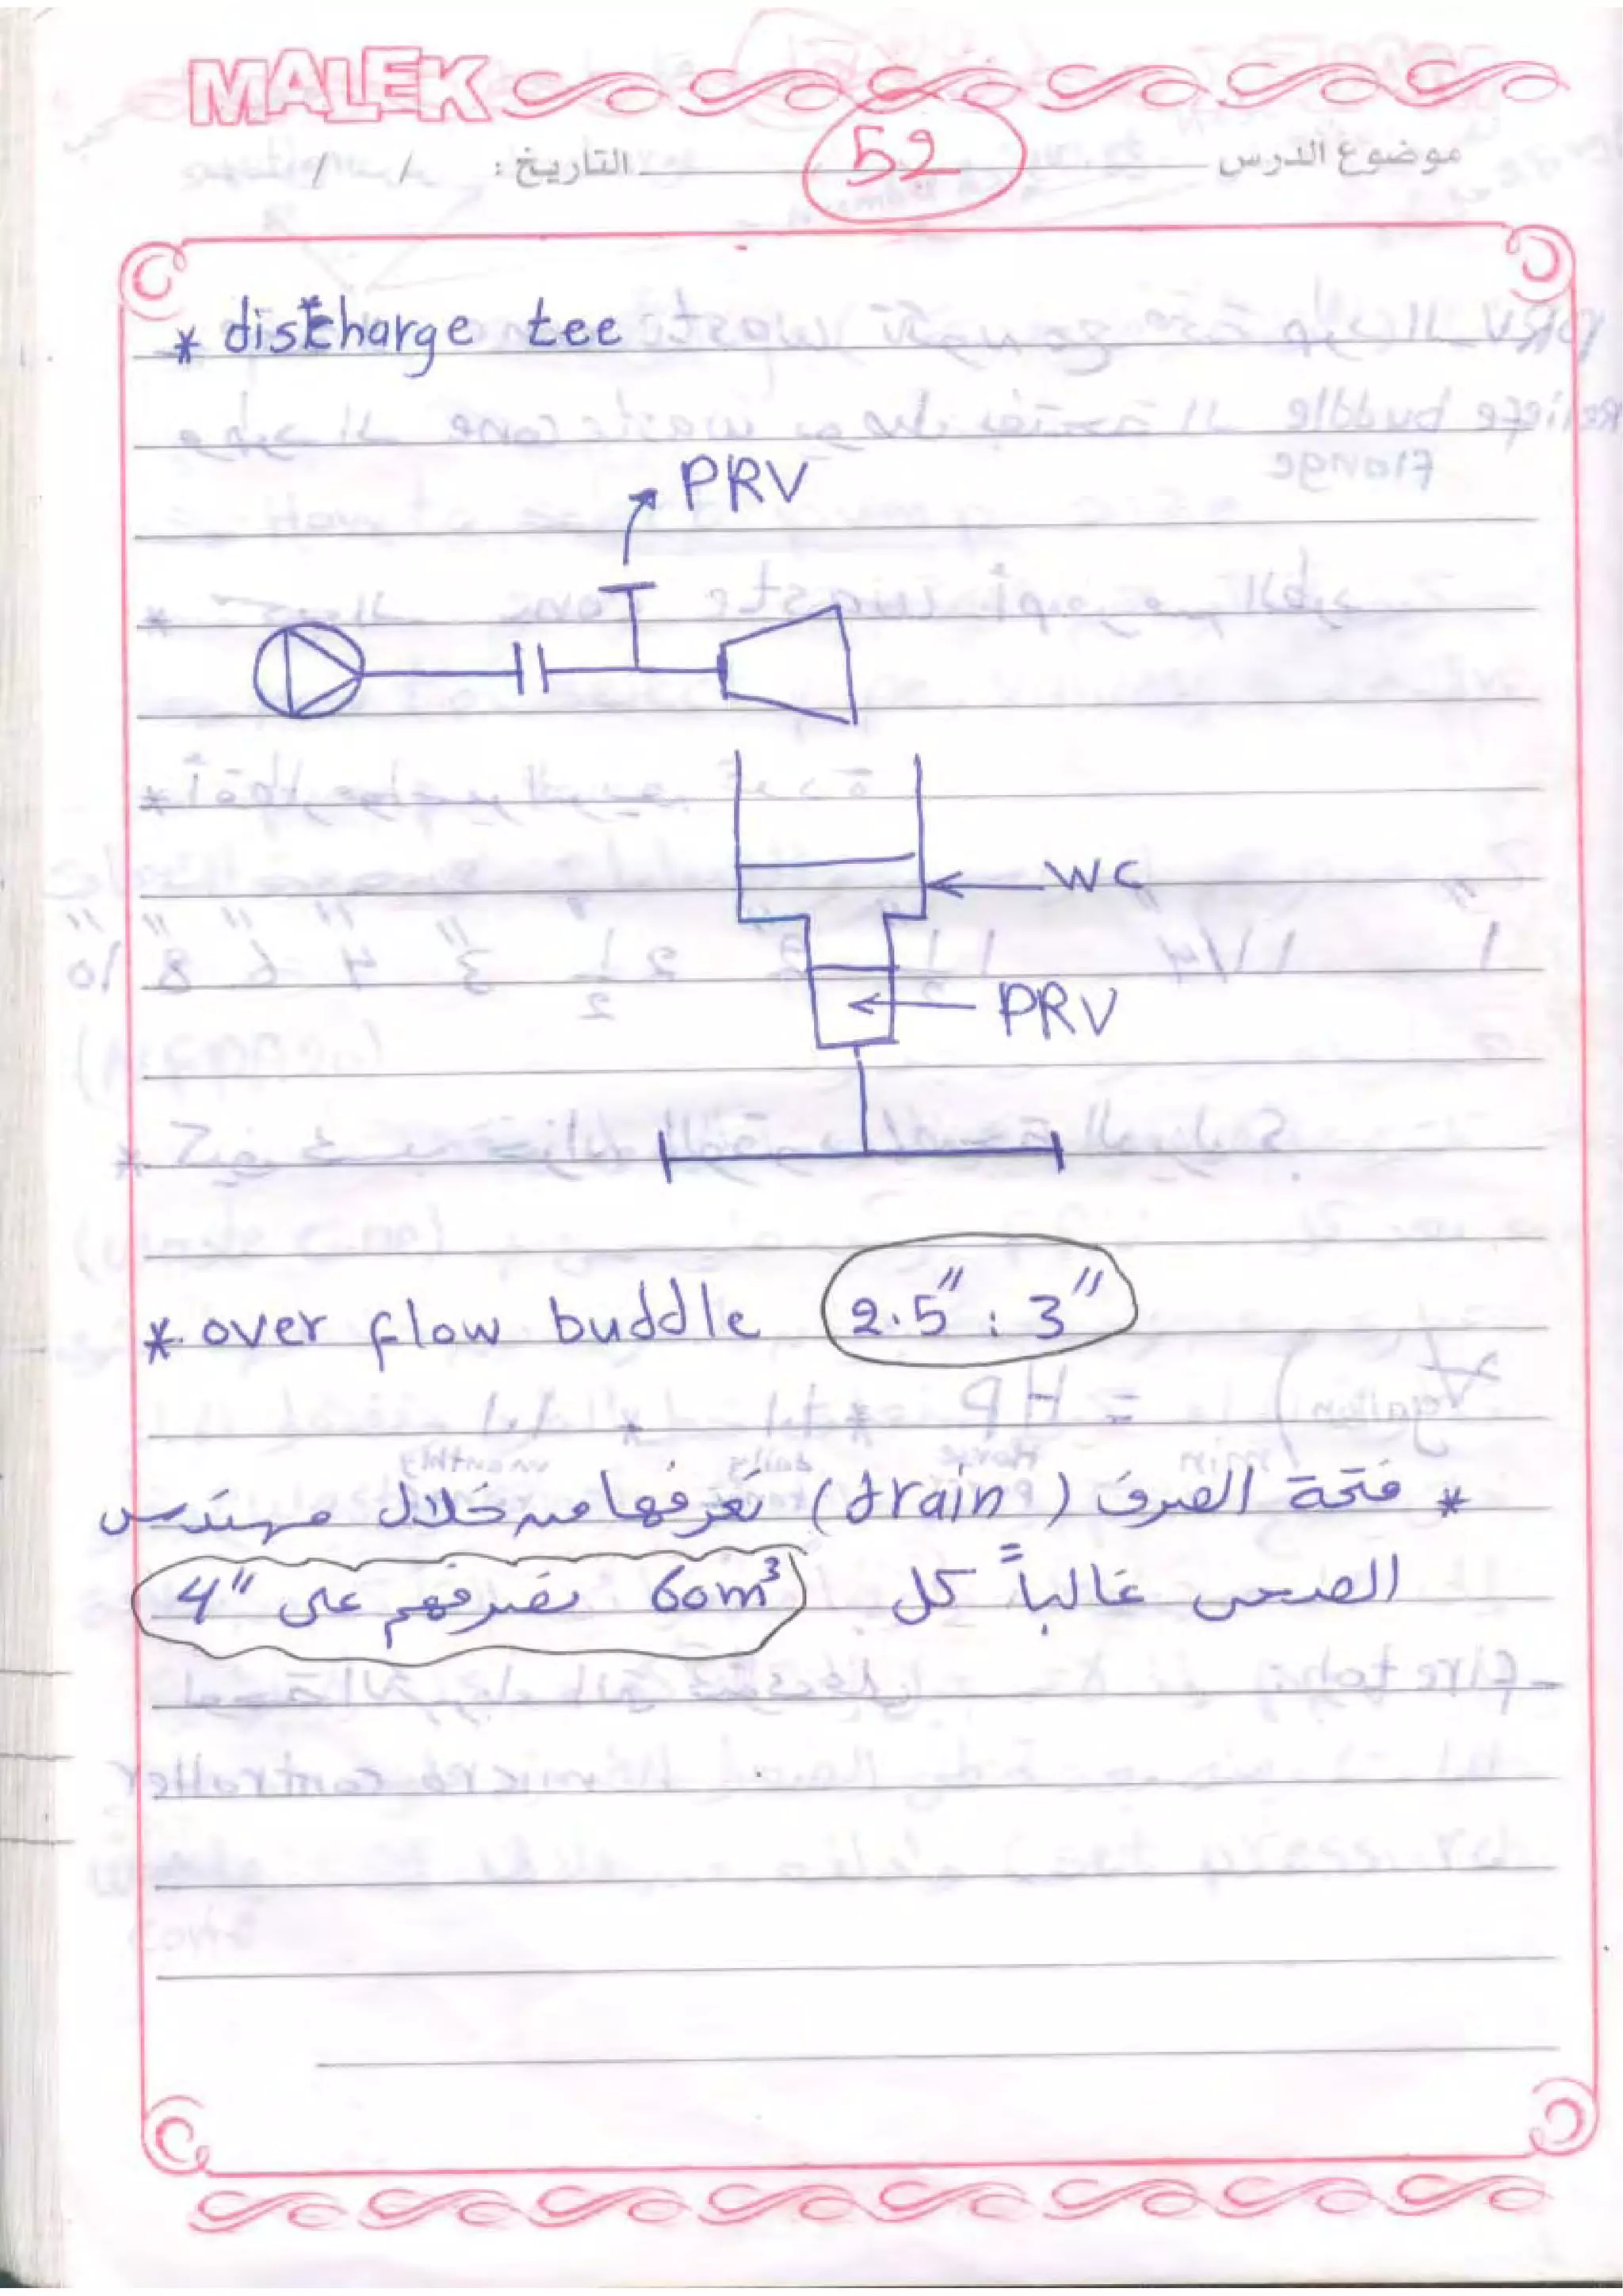 MALEK
موضوع الدرس 52 التاريخ: / /
* discharge tee
PRV
WC
PRV
* over flow buddle 2.5" : 3"
* فتحة الصرف (drain) نعرفها من خلال مهندس
الصحى غالباً كل 60m³ نصرفهم على 4"